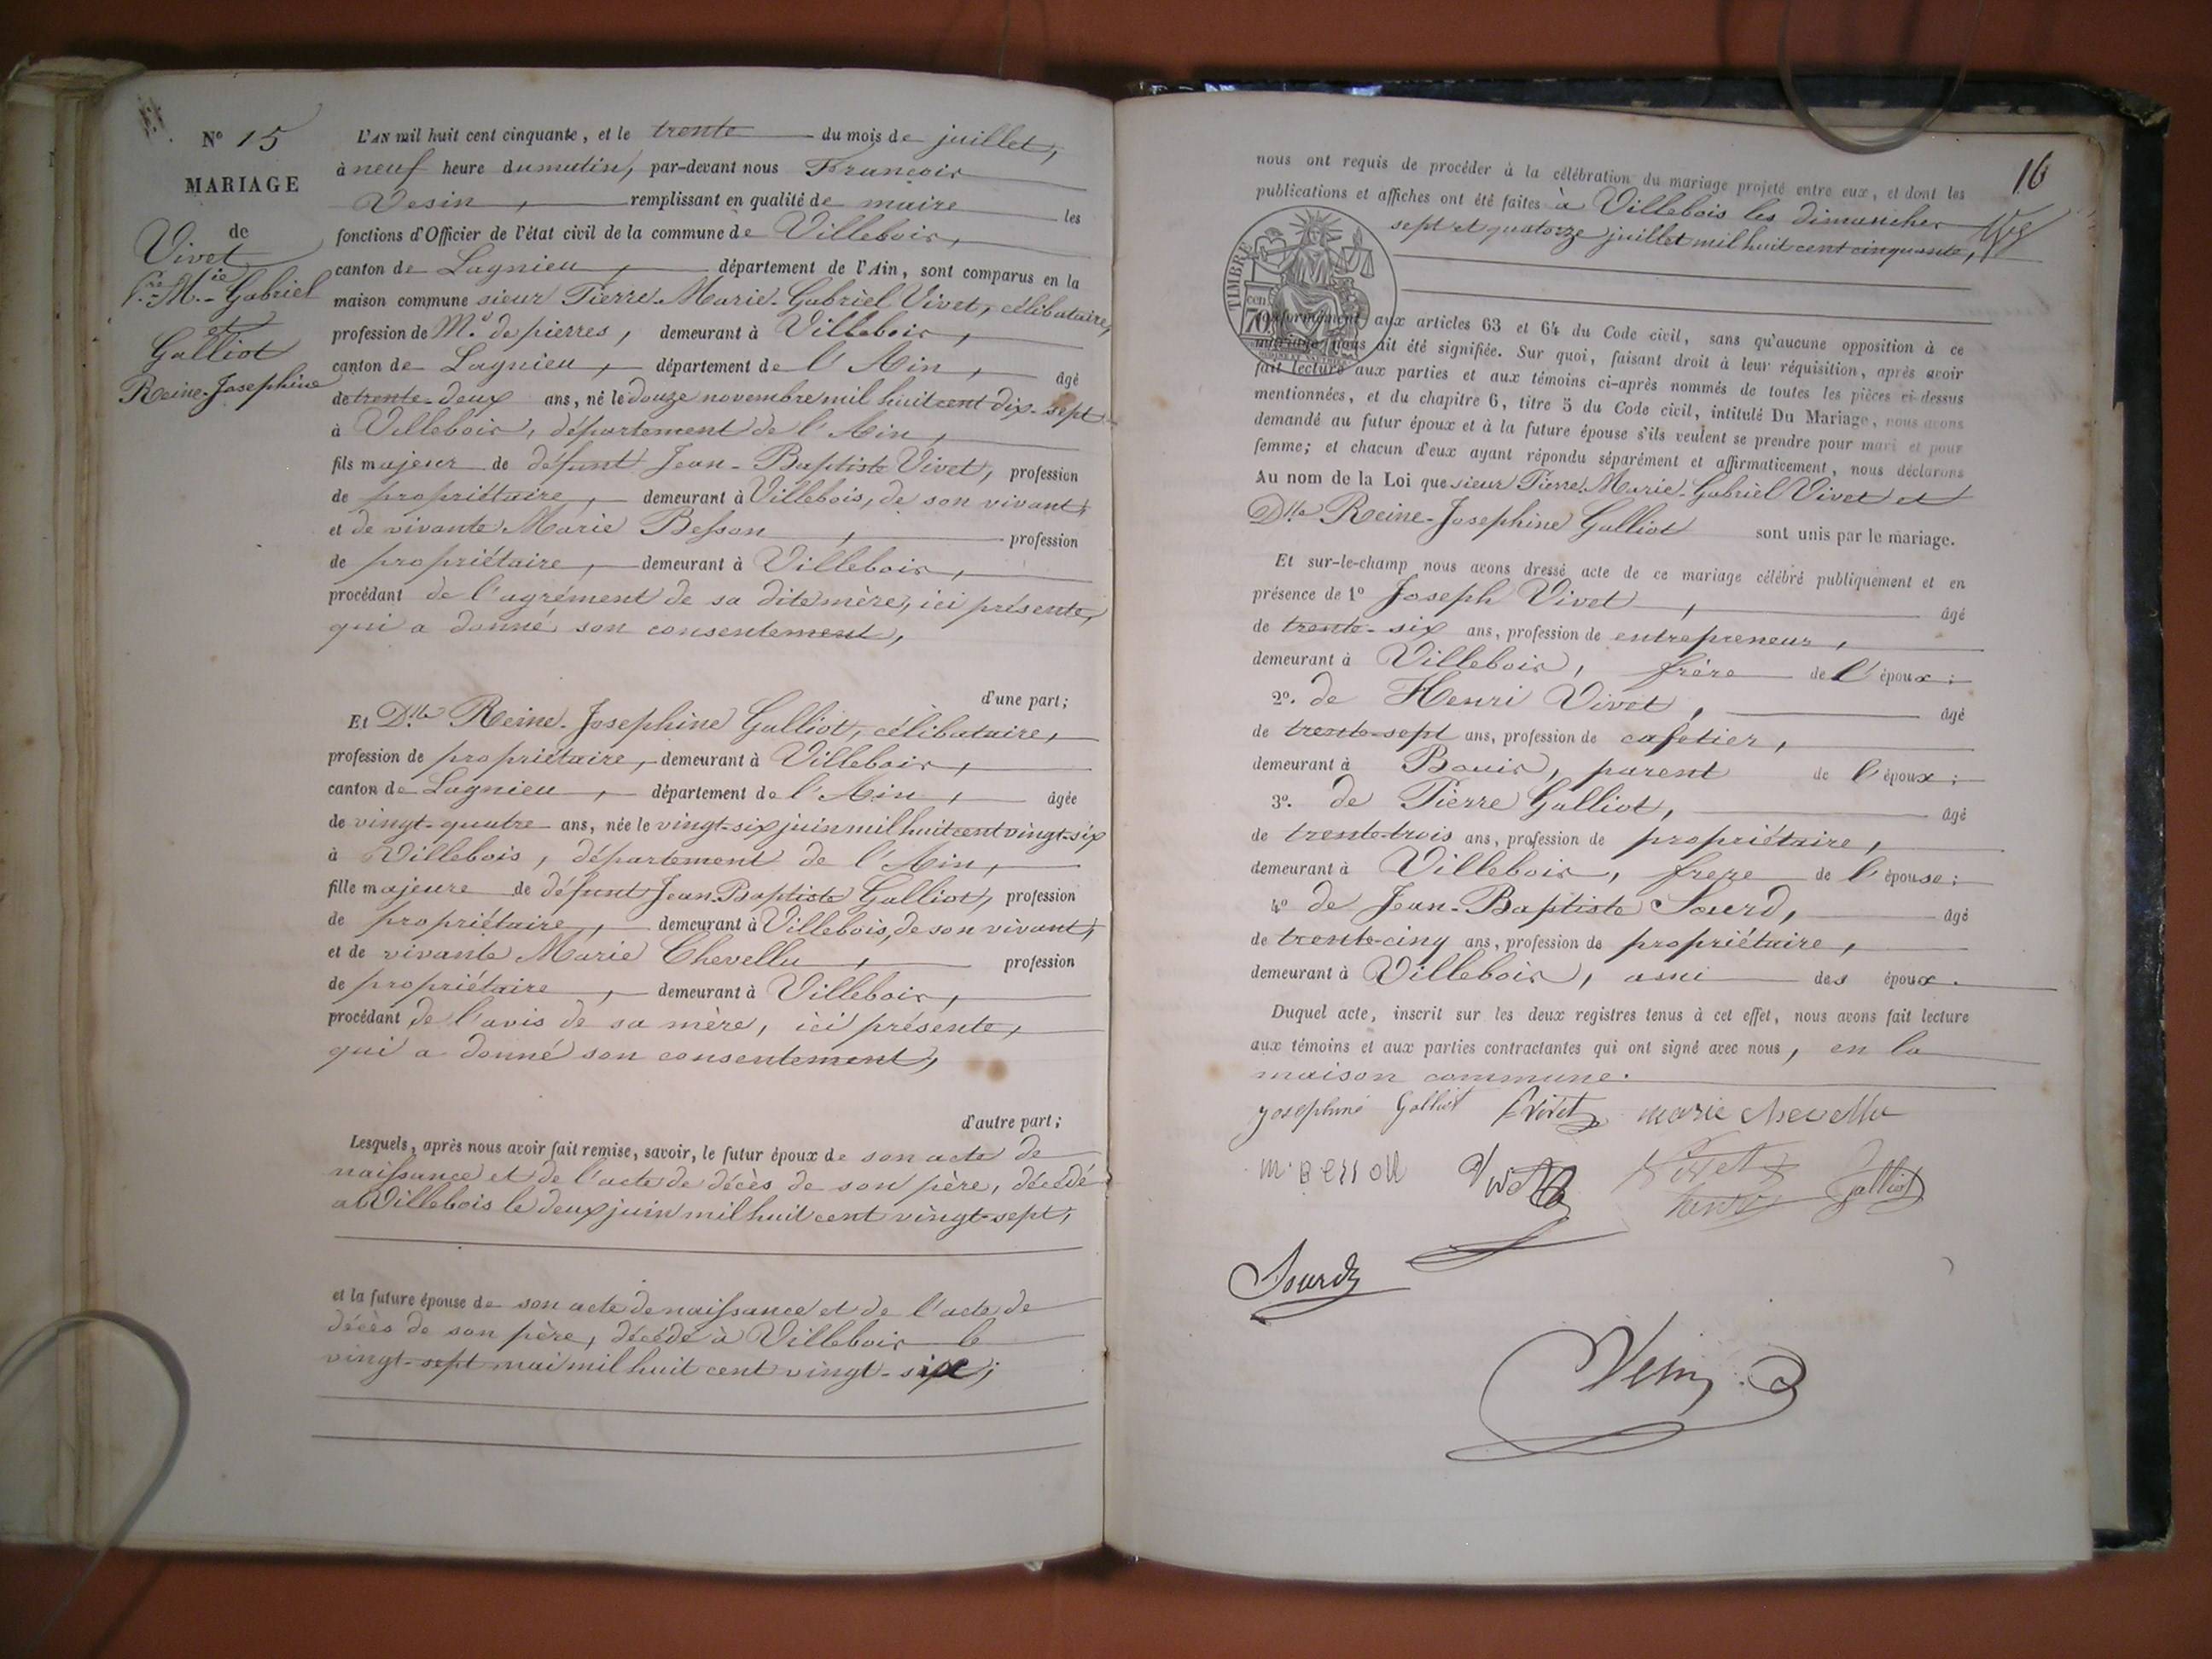 N° 15
MARIAGE
de
Vivet
Pre M.ie Gabriel
et
Galliot
Reine-Josephine
L'AN mil huit cent cinquante, et le trente du mois de juillet,
à neuf heure du matin, par-devant nous François
Vesin, remplissant en qualité de maire les
fonctions d'Officier de l'état civil de la commune de Villebois,
canton de Lagnieu, département de l'Ain, sont comparus en la
maison commune sieur Pierre-Marie-Gabriel Vivet, célibataire,
profession de M.d de pierres, demeurant à Villebois,
canton de Lagnieu, département de l'Ain, âgé
de trente-deux ans, né le douze novembre mil huit cent dix-sept
à Villebois, département de l'Ain,
fils majeur de défunt Jean-Baptiste Vivet, profession
de propriétaire, demeurant à Villebois, de son vivant,
et de vivante Marie Besson, profession
de propriétaire, demeurant à Villebois,
procédant de l'agrément de sa dite mère, ici présente,
qui a donné son consentement,
d'une part;
Et D.lle Reine-Josephine Galliot, célibataire,
profession de propriétaire, demeurant à Villebois,
canton de Lagnieu, département de l'Ain, âgée
de vingt-quatre ans, née le vingt-six juin mil huit cent vingt-six
à Villebois, département de l'Ain,
fille majeure de défunt Jean-Baptiste Galliot, profession
de propriétaire, demeurant à Villebois, de son vivant,
et de vivante Marie Chevellu, profession
de propriétaire, demeurant à Villebois,
procédant de l'avis de sa mère, ici présente,
qui a donné son consentement,
d'autre part;
Lesquels, après nous avoir fait remise, savoir, le futur époux de son acte de
naissance et de l'acte de décès de son père, décédé
à Villebois le deux juin mil huit cent vingt-sept,
et la future épouse de son acte de naissance et de l'acte de
décès de son père, décédé à Villebois le
vingt-sept mai mil huit cent vingt-six;
16
nous ont requis de procéder à la célébration du mariage projeté entre eux, et dont les
publications et affiches ont été faites à Villebois les dimanches
sept et quatorze juillet mil huit cent cinquante,
TIMBRE
70 cen
conformément aux articles 63 et 64 du Code civil, sans qu'aucune opposition à ce
mariage nous ait été signifiée. Sur quoi, faisant droit à leur réquisition, après avoir
fait lecture aux parties et aux témoins ci-après nommés de toutes les pièces ci-dessus
mentionnées, et du chapitre 6, titre 5 du Code civil, intitulé Du Mariage, nous avons
demandé au futur époux et à la future épouse s'ils veulent se prendre pour mari et pour
femme; et chacun d'eux ayant répondu séparément et affirmativement, nous déclarons
Au nom de la Loi que sieur Pierre-Marie-Gabriel Vivet et
D.lle Reine-Josephine Galliot sont unis par le mariage.
Et sur-le-champ nous avons dressé acte de ce mariage célébré publiquement et en
présence de 1° Joseph Vivet, âgé
de trente-six ans, profession de entrepreneur,
demeurant à Villebois, frère de l'époux;
2°. de Henri Vivet, âgé
de trente-sept ans, profession de cafetier,
demeurant à Bouis, parent de l'époux;
3°. de Pierre Galliot, âgé
de trente-trois ans, profession de propriétaire,
demeurant à Villebois, frere de l'épouse;
4° de Jean-Baptiste Sourd, âgé
de trente-cinq ans, profession de propriétaire,
demeurant à Villebois, ami des époux.
Duquel acte, inscrit sur les deux registres tenus à cet effet, nous avons fait lecture
aux témoins et aux parties contractantes qui ont signé avec nous, en la
maison commune.
Josephine Galliot Vivet marie chevellu
m. Besson Vivet Vivet henri Galliot
Sourd
Vesin